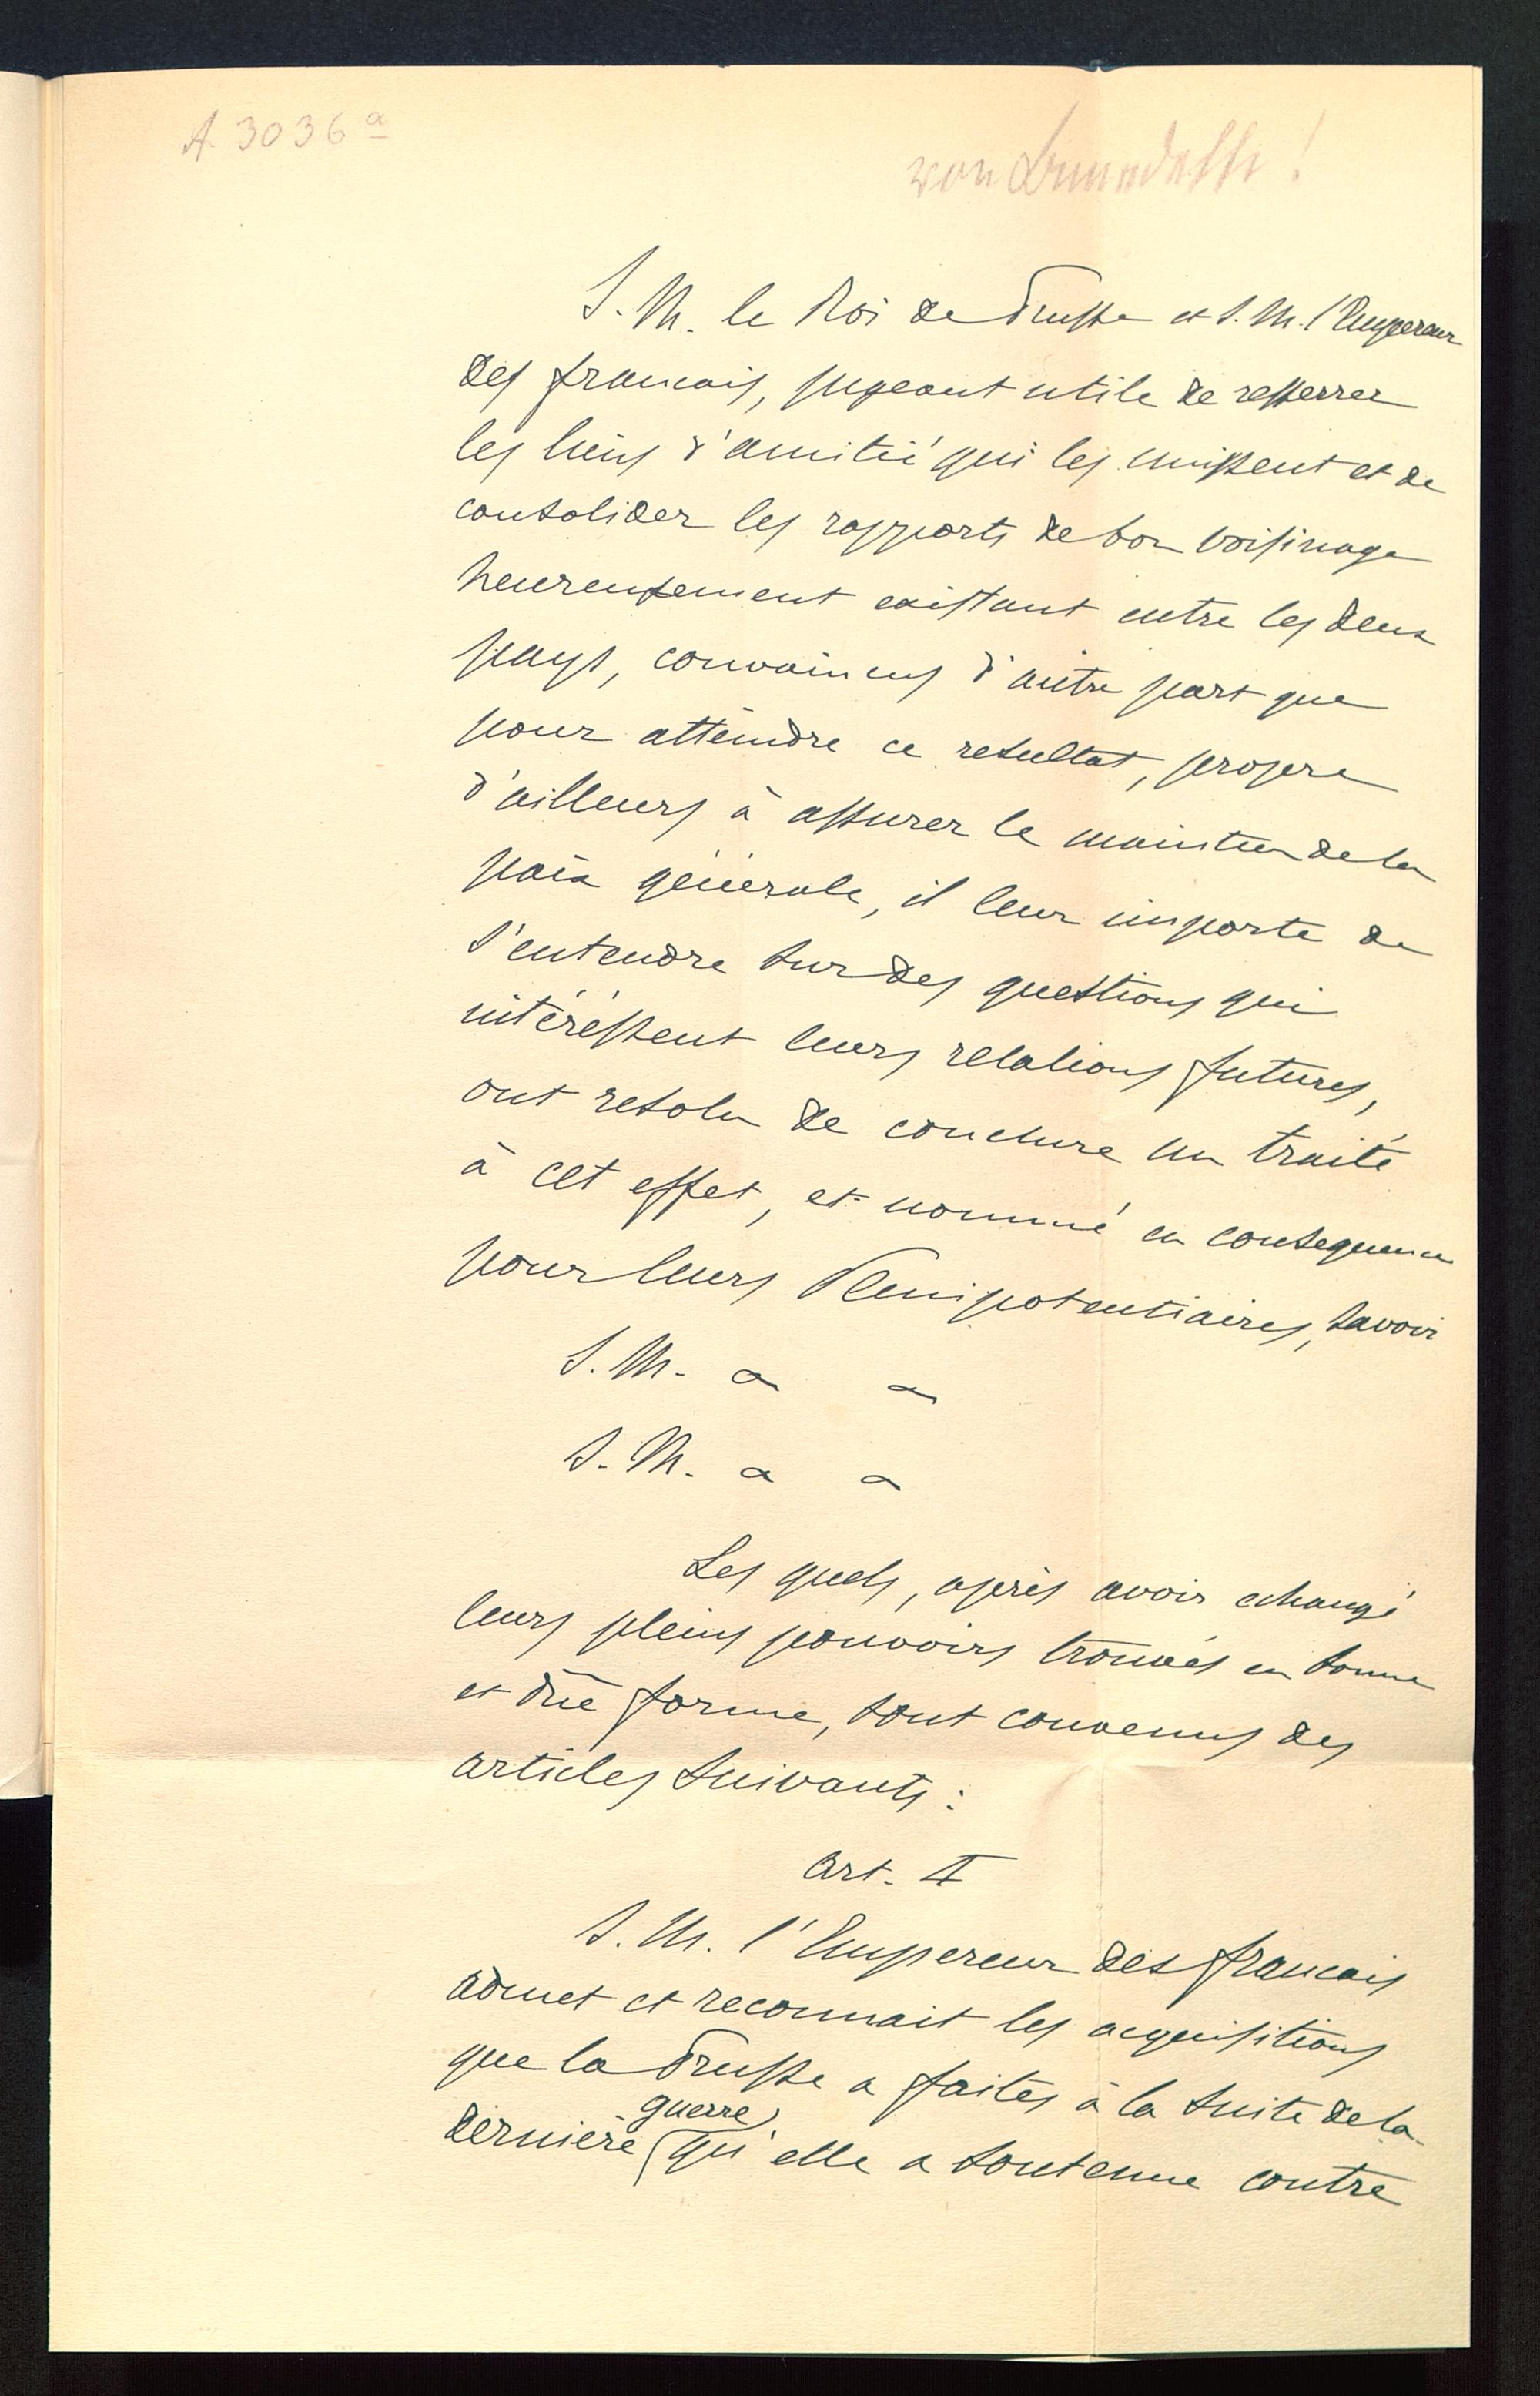 A. 3036 a
von
S. M. le Roi de Prusse et S. M. l'Empereur
des francais, jugeant utile de resserrer
les liens d'amitié qui les unissent et de
consolider les rapports de bon voisinage
heureusement existant entre les deux
pays, convaincus d'autre part que
pour atteindre ce resultat, propre
d'ailleurs à assurer le maintien de la
paix générale, il leur importe de
s'entendre sur des questions qui
intéréssent leurs relations futures,
ont resolu de conclure un traité
à cet effet, et nommé en consequence
pour leurs Plenipotentiaires, savoir
S. M. a a
S. M. a a
Les quels, après avoir echangé
leurs pleins pouvoirs trouvés en bonne
et dûe forme, sont convenus des
articles suivants:
art. I
S. M. l'Empereur des francais
admet et reconnait les acquisitions
que la Prusse a faites à la suite de la
guerre
dernière qu'elle a soutenue contre